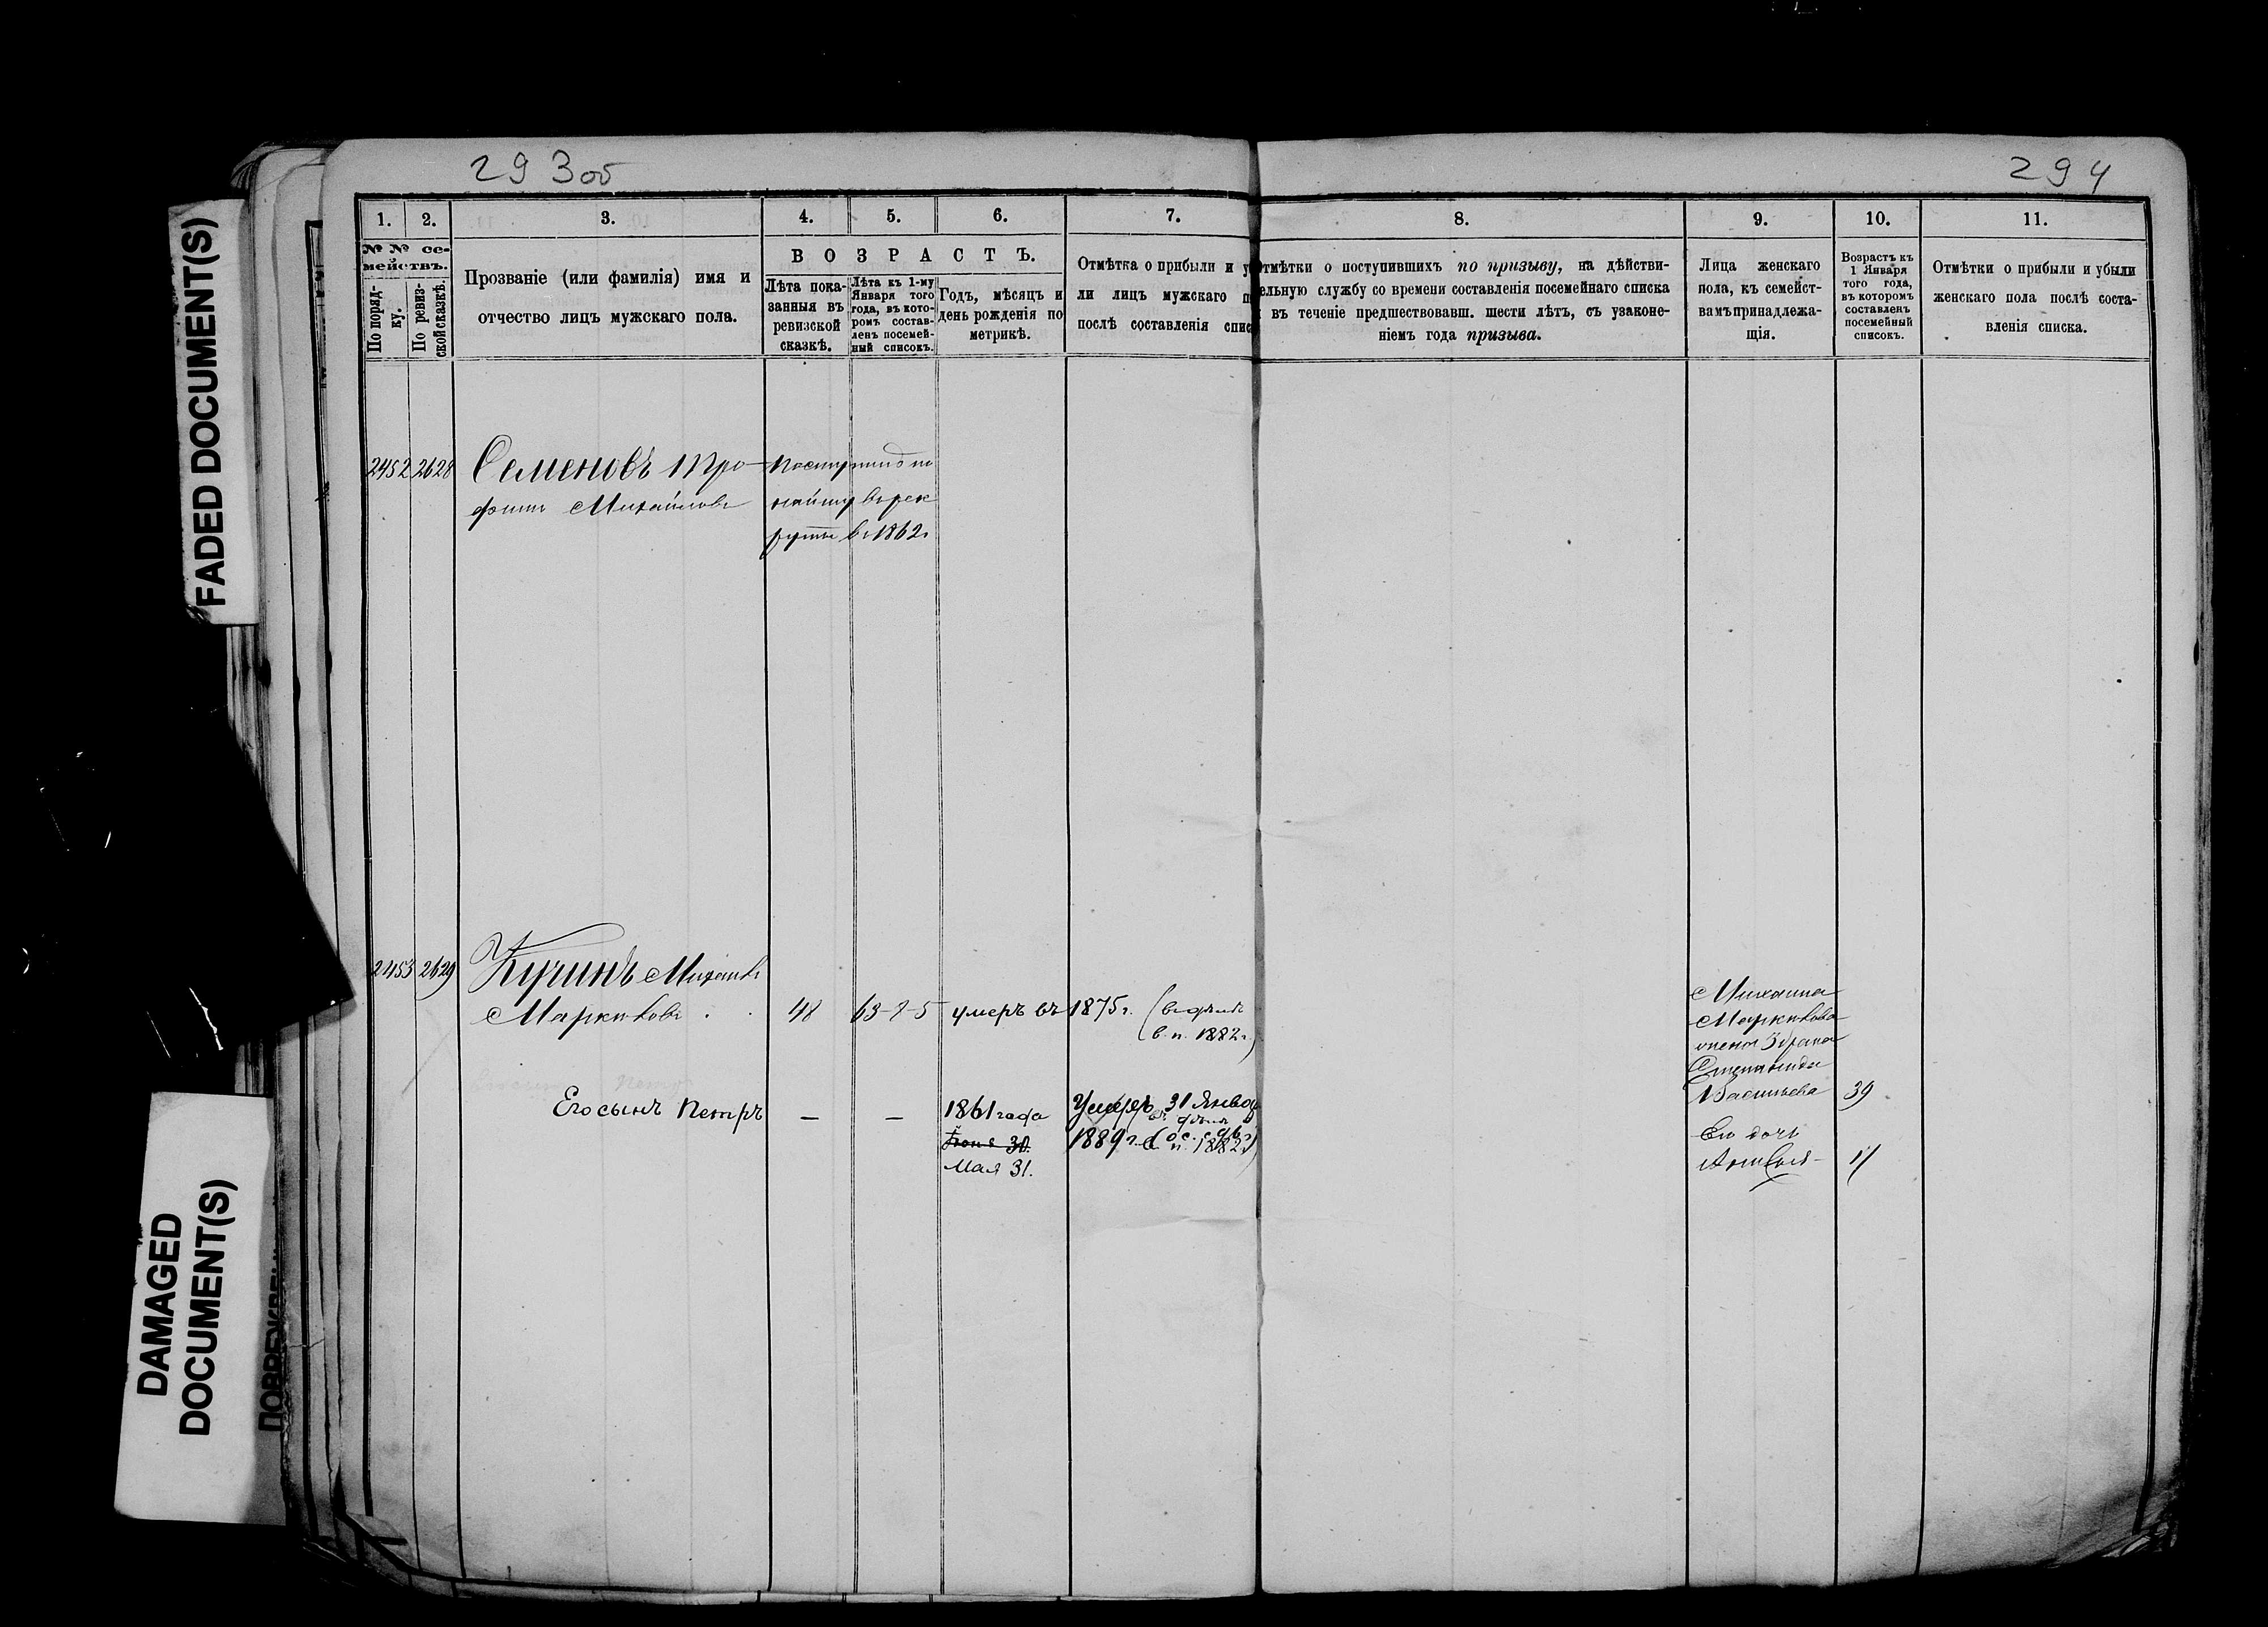 293об
294
FADED DOCUMENT(S)
DAMAGED
DOCUMENT(S)
1. 2. 3. 4. 5. 6. 7. 8. 9. 10. 11.
№ № се-
мействъ.
По поряд-
ку.
По ревиз-
ской сказкѣ.
Прозваніе (или фамилія) имя и
отчество лицъ мужскаго пола.
ВОЗРАСТЪ.
Лѣта пока-
занныя въ
ревизской
сказкѣ.
Лѣта къ 1-му
Января того
года, въ кото-
ромъ состав-
ленъ посемей-
ный списокъ.
Годъ, мѣсяцъ и
день рожденія по
метрикѣ.
Отмѣтка о прибыли и у
ли лицъ мужскаго п
послѣ составленія спис
Отмѣтки о поступившихъ по призыву, на дѣйстви-
ельную службу со времени составленія посемейнаго списка
въ теченіе предшествовавш. шести лѣтъ, съ узаконе-
ніемъ года призыва.
Лица женскаго
пола, къ семейст-
вамъ принадлежа-
щія.
Возрастъ къ
1 Января
того года,
въ которомъ
составленъ
посемейный
списокъ.
Отмѣтки о прибыли и убыли
женскаго пола послѣ соста-
вленія списка.
2452 2628 Семеновъ Тро-
фимъ Михайловъ
Поступилъ по
найму въ рек
руты въ 1862г
2453 2629 Кучинъ Михаилъ
Маркиловъ 48 63 умеръ въ 1875г.
в. п. 1882г.)
Его сынъ Петръ — — 1861 года
Іюня 30.
Мая 31.
Умеръ 31 Янвор
1889г.
п. 1882г)
Михаила
Васильева 39
Ея дочь
17